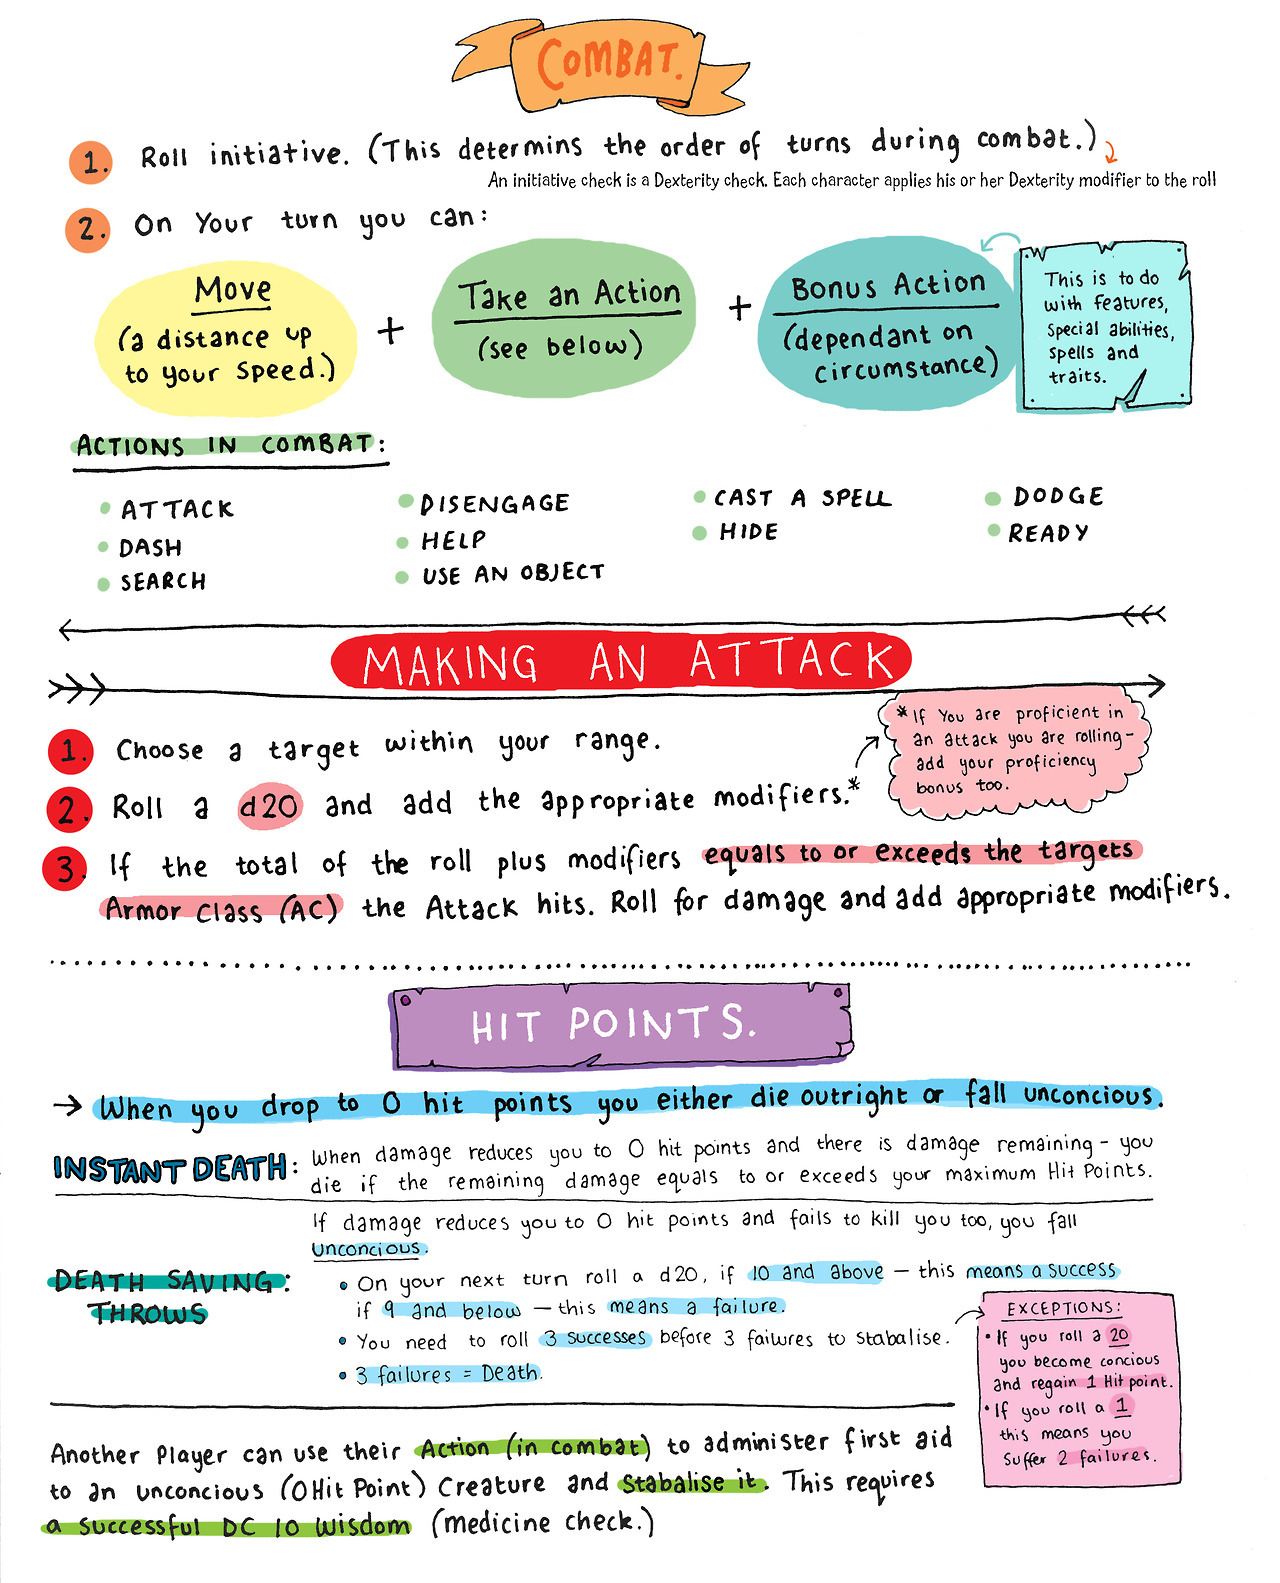 COMBAT.
1. Roll initiative. (This determins the order of turns during combat.)
An initiative check is a Dexterity check. Each character applies his or her Dexterity modifier to the roll
2. On Your turn you can:
Move
(a distance up
to your speed.)
+
Take an Action
(see below)
+
Bonus Action
(dependant on
circumstance)
This is to do
with features,
special abilities,
spells and
traits.
ACTIONS IN COMBAT:
• ATTACK
• DASH
• SEARCH
• DISENGAGE
• HELP
• USE AN OBJECT
• CAST A SPELL
• HIDE
• DODGE
• READY
MAKING AN ATTACK
1. Choose a target within your range.
2. Roll a d20 and add the appropriate modifiers.*
* If You are proficient in
an attack you are rolling-
add your proficiency
bonus too.
3. If the total of the roll plus modifiers equals to or exceeds the targets
Armor Class (AC) the Attack hits. Roll for damage and add appropriate modifiers.
HIT POINTS.
→ When you drop to 0 hit points you either die outright or fall unconcious.
INSTANT DEATH:
When damage reduces you to 0 hit points and there is damage remaining - you
die if the remaining damage equals to or exceeds your maximum Hit Points.
If damage reduces you to 0 hit points and fails to kill you too, you fall
unconcious.
DEATH SAVING:
THROWS
• On your next turn roll a d20, if 10 and above - this means a success
if 9 and below - this means a failure.
• You need to roll 3 successes before 3 failures to stabalise.
• 3 failures = Death.
EXCEPTIONS:
• If you roll a 20
you become concious
and regain 1 Hit point.
• If you roll a 1
this means you
suffer 2 failures.
Another Player can use their Action (in combat) to administer first aid
to an unconcious (0 Hit Point) Creature and Stabalise it. This requires
a successful DC 10 Wisdom (medicine check.)